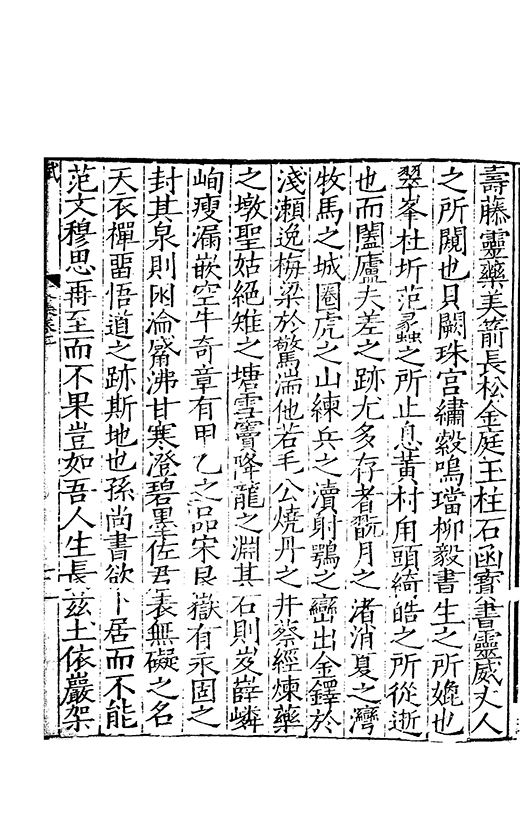 壽藤靈藥美箭長松金庭玉柱石函寶書靈威丈人
之所閱也貝闕珠宫繡縠鳴璫柳毅書生之所媲也
翠峯杜圻范蠡之所止息黃村甪頭綺皓之所從逝
也而闔廬夫差之跡尤多存者翫月之渚消夏之灣
牧馬之城圈虎之山練兵之瀆射鶚之巒出金鐸於
淺瀨逸梅梁於驚湍他若毛公燒丹之井蔡經煉藥
之墩聖姑絕雉之塘雪竇降龍之淵其石則岌嶭嶙
峋瘦漏嵌空牛奇章有甲乙之品宋艮嶽有永固之
封其泉則困淪觱沸甘寒澄碧墨佐君表無礙之名
天衣禪畱悟道之跡斯地也孫尚書欲卜居而不能
范文穆思再至而不果豈如吾人生長兹土依巖架